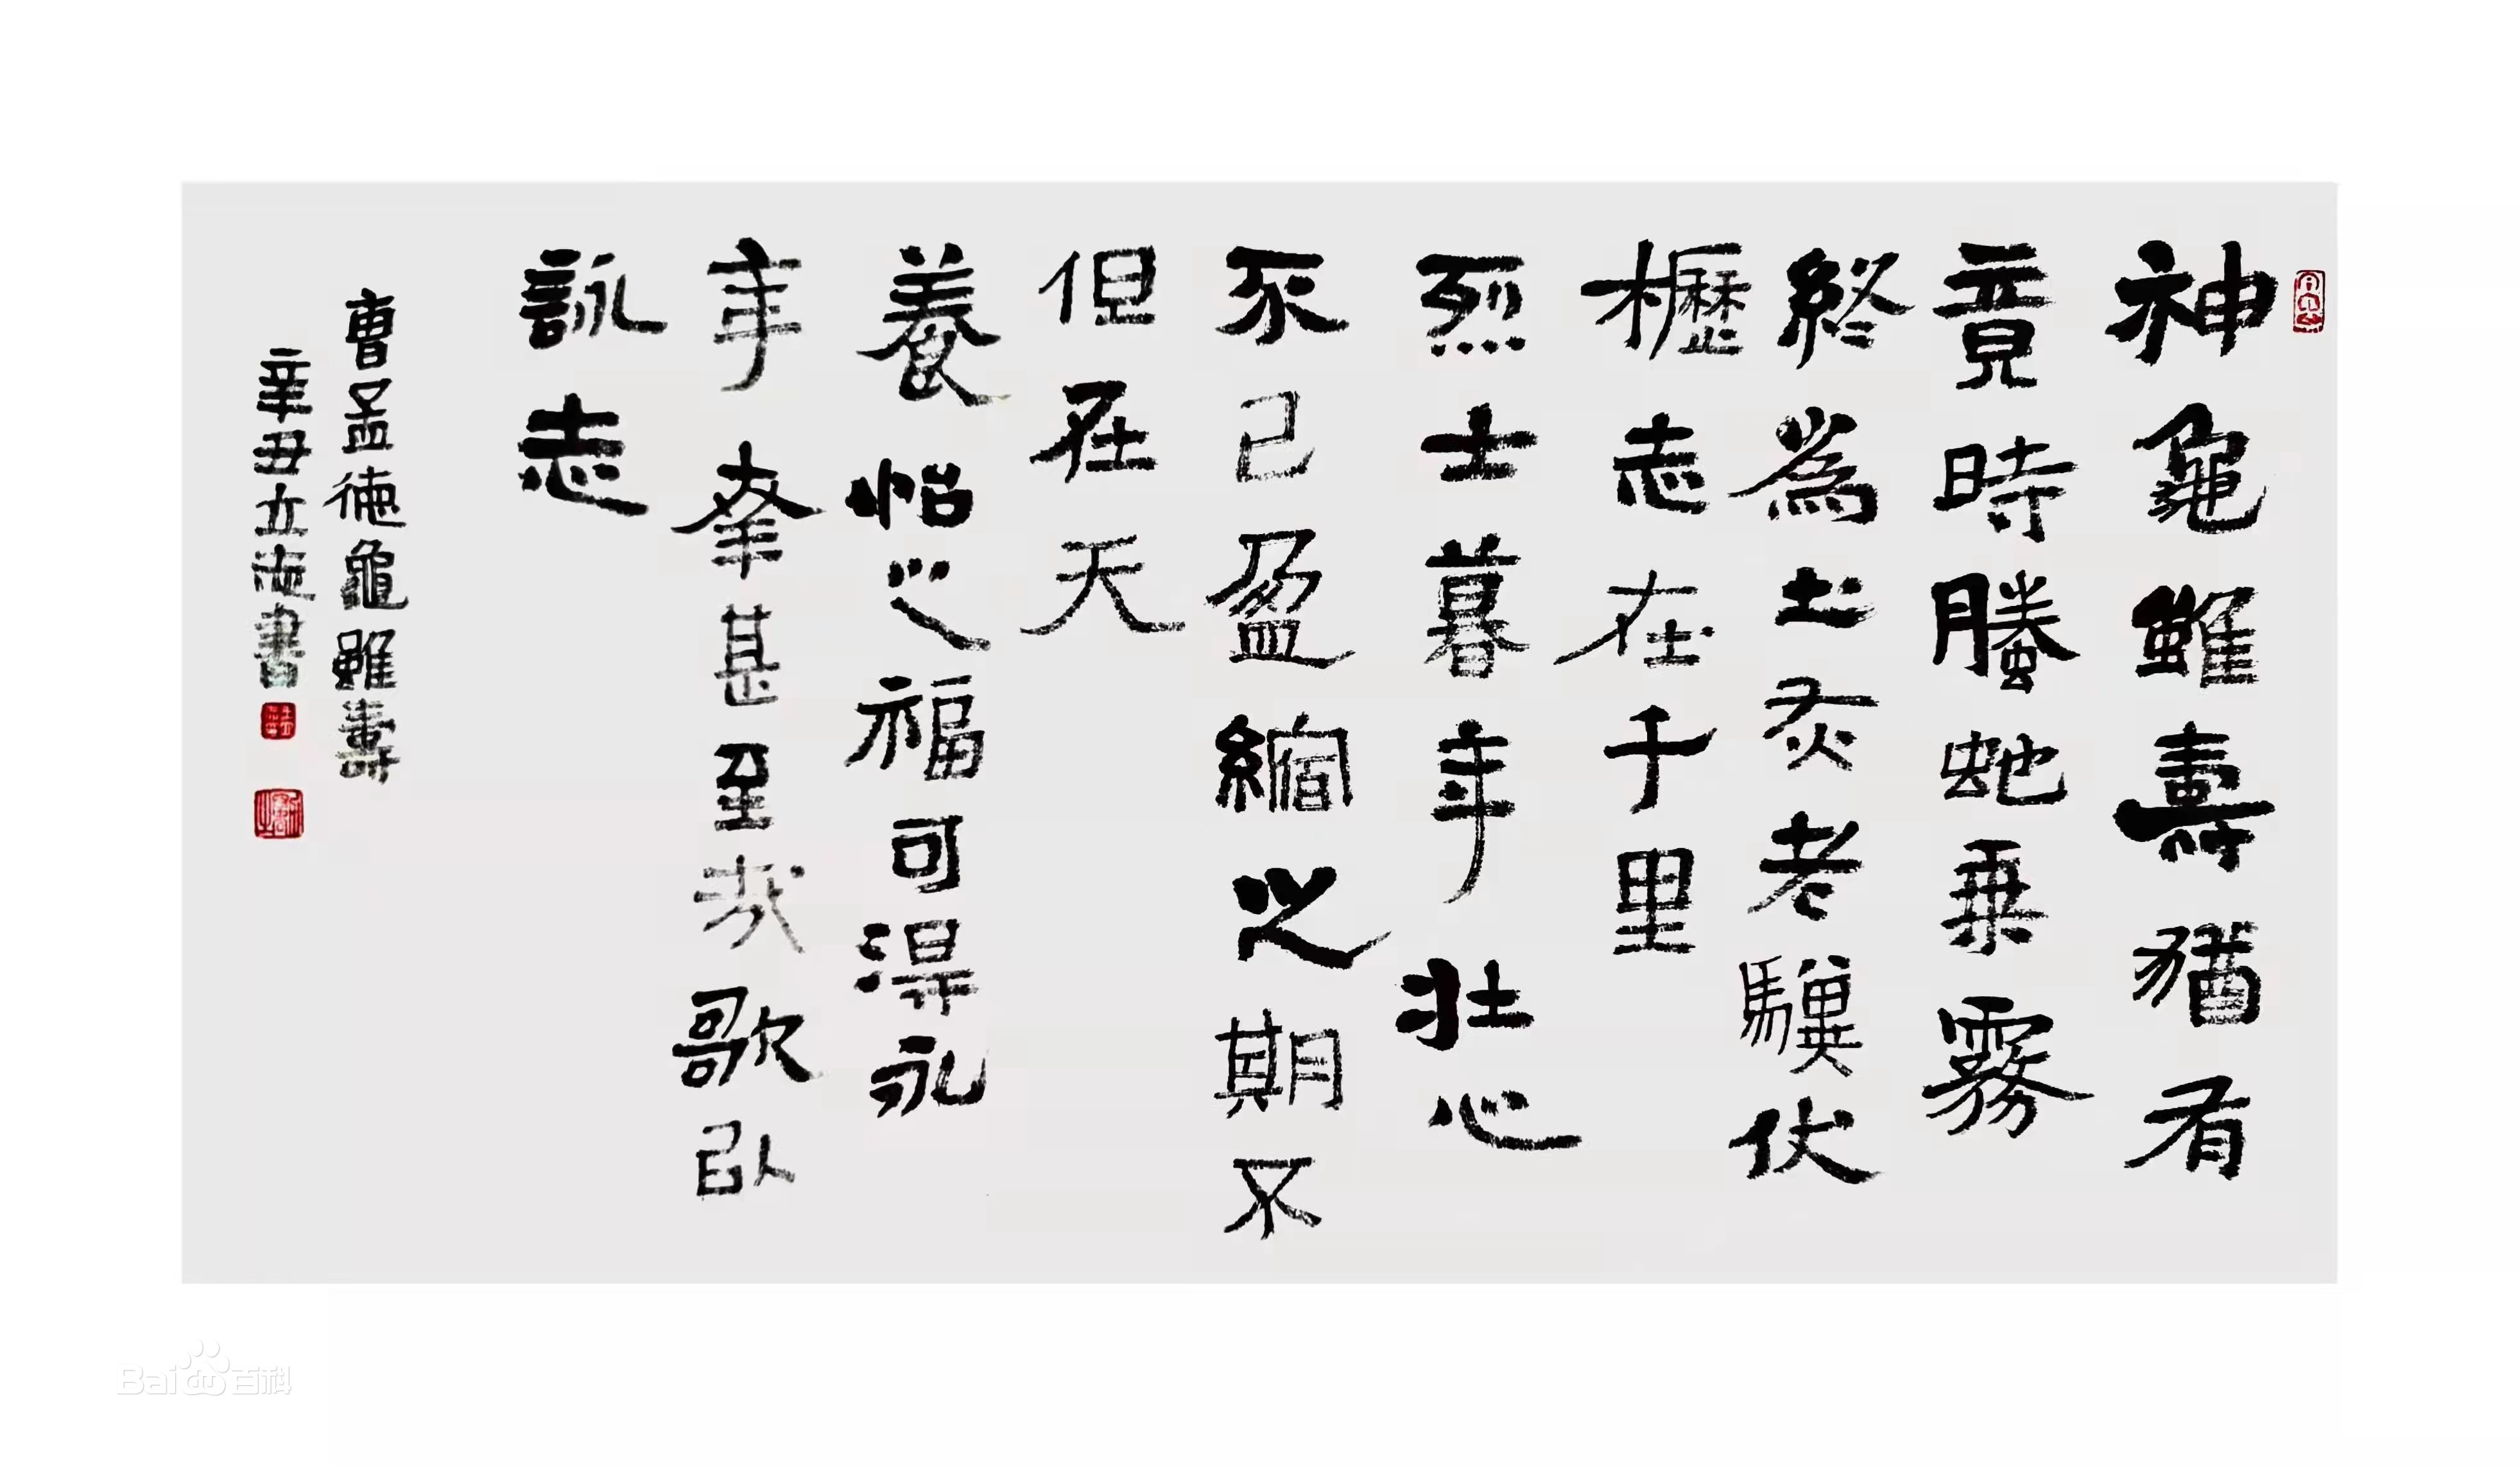 神龜雖壽猶有
竟時騰蛇乗霧
終為土灰老驥伏
櫪志在千里
烈士暮年壯心
不已盈縮之期不
但在天
養怡之福可得永
年幸甚至哉歌以
詠志
曹孟德龜雖壽
辛丑立志書
Bai 百科